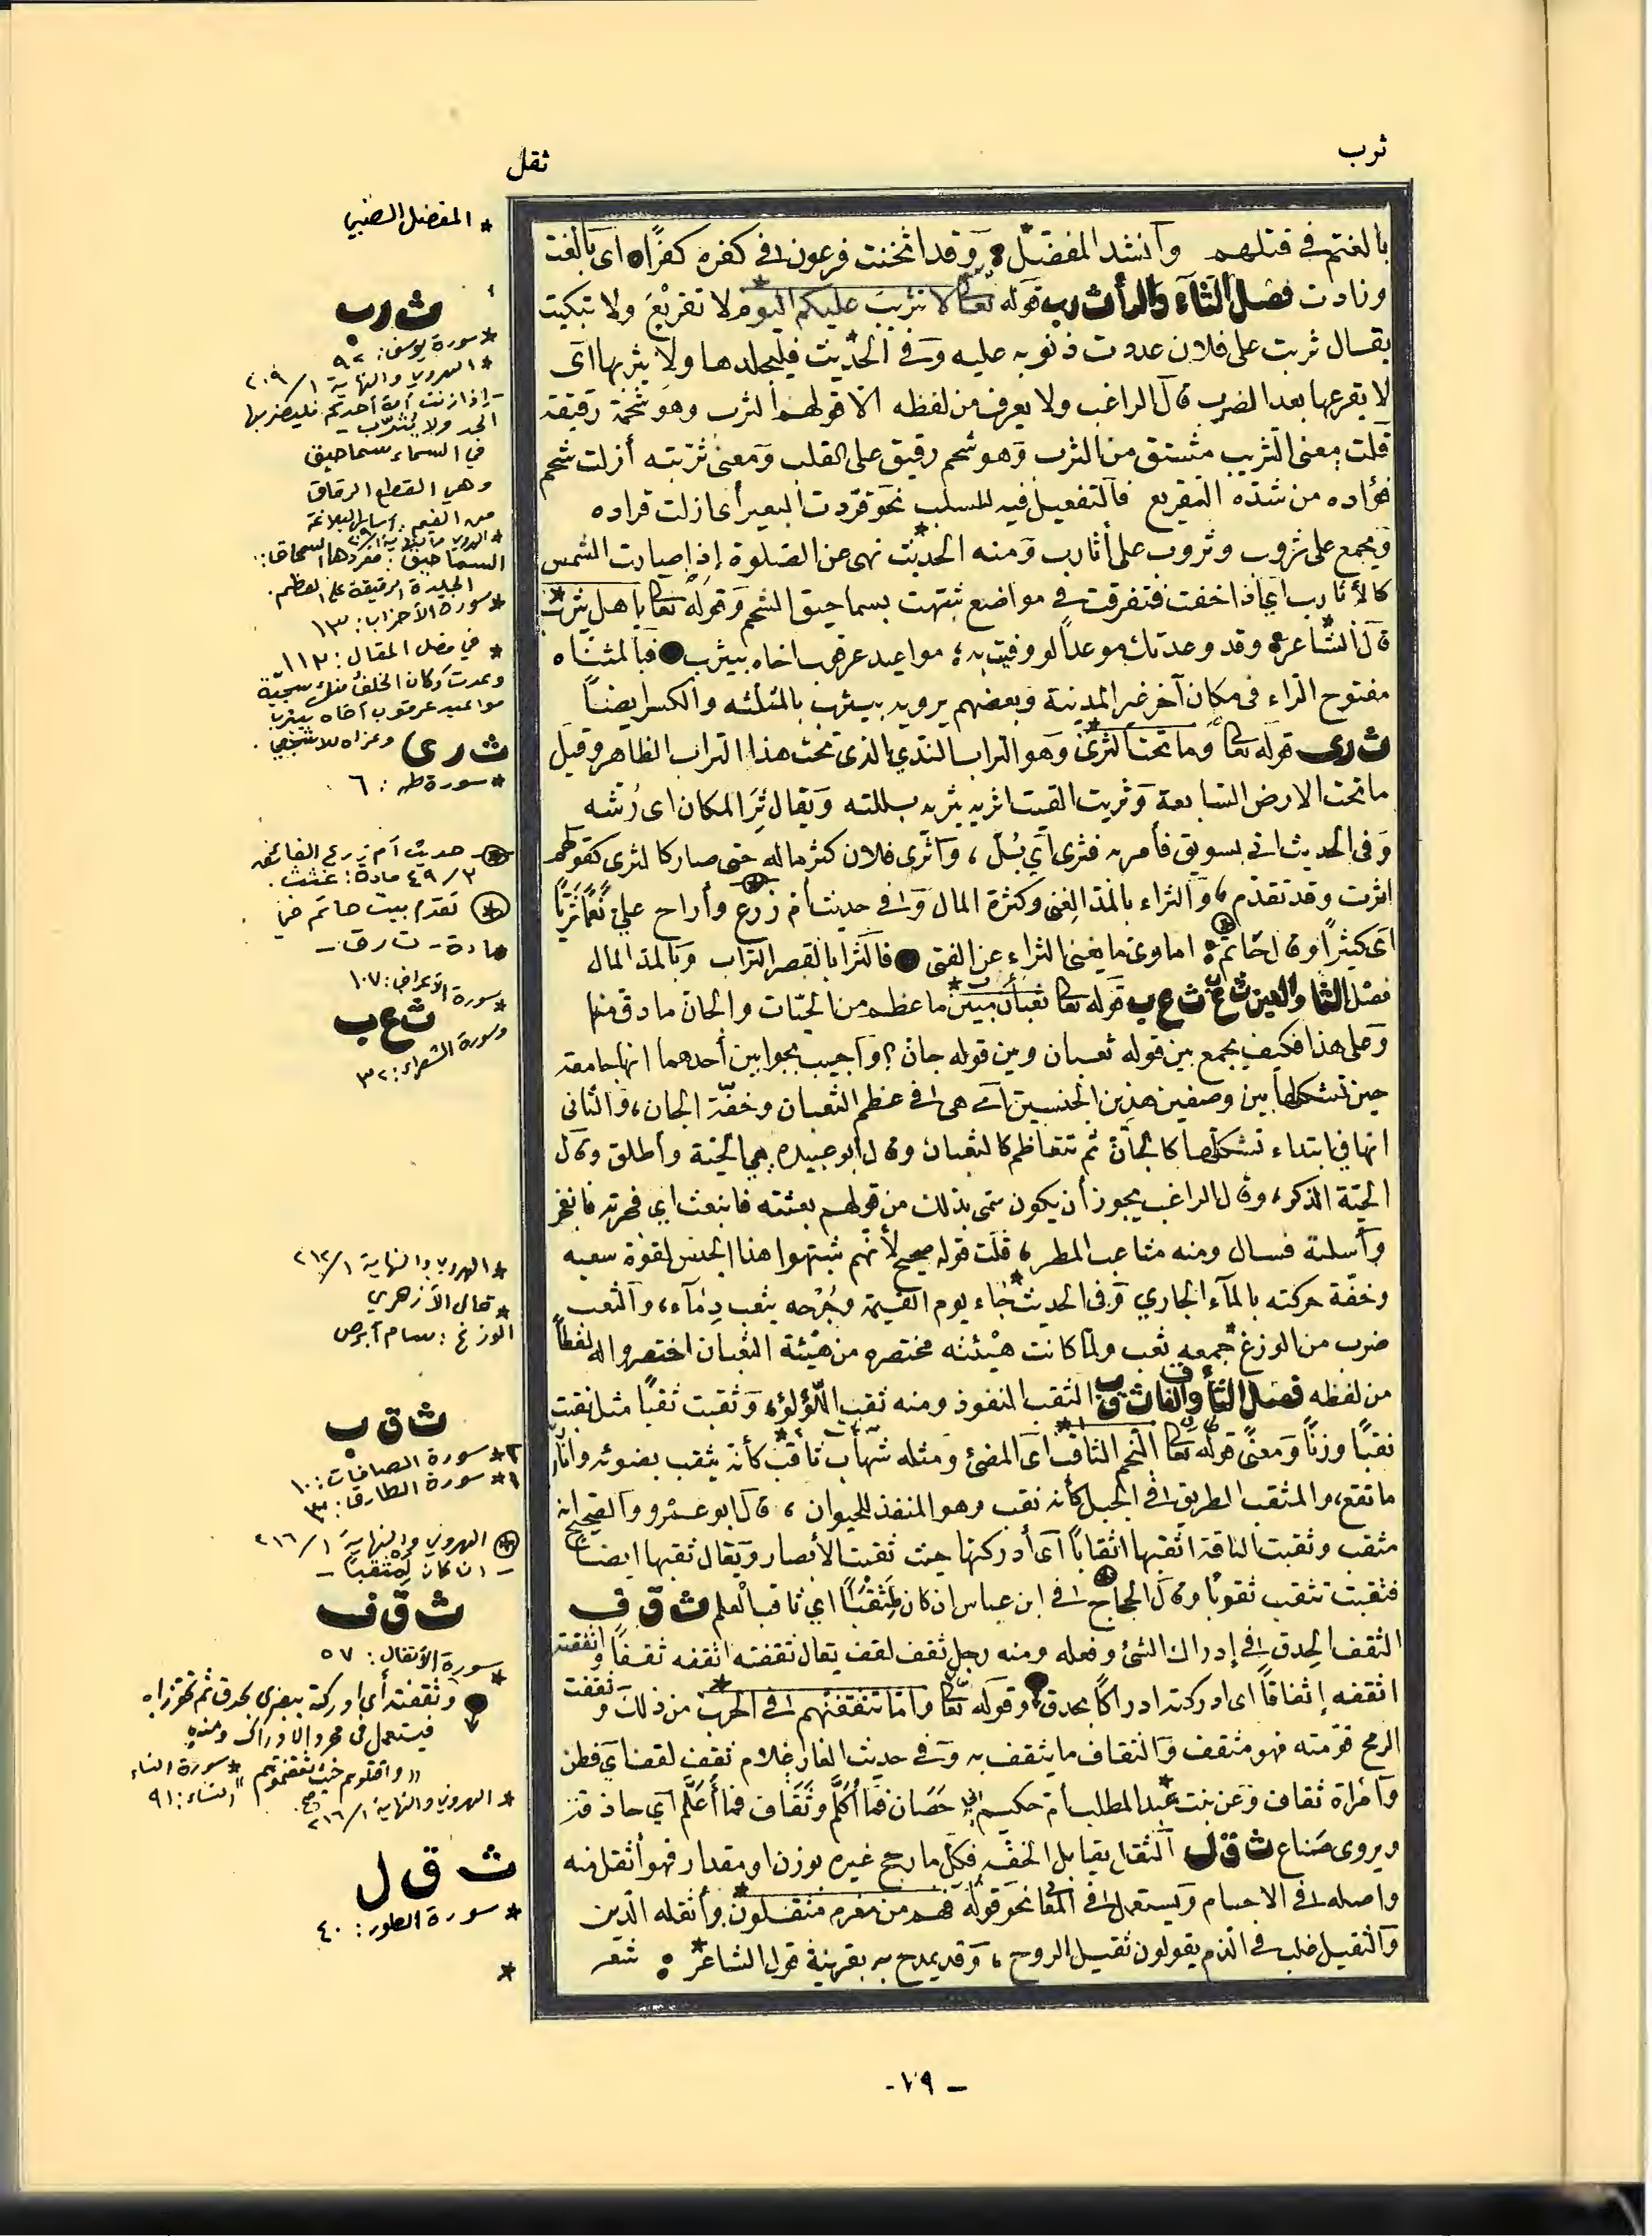 ثرب
ثقل
بالغتم في قتلهم وأنشد المفضل وقد اثخنت فرعون في كفره كفرًا اى بالغت
وزادت فصل الثاء والراء ث ر ب قوله تعا لا تثريب عليكم اليوم لا تقريع ولا تبكيت
يقال ثربت على فلان عددت ذنوبه عليه وفي الحديث فليجلدها ولا يثربها اى
لا يقرعها بعد الضرب قال الراغب ولا يعرف من لفظه الا قولهم الثرب وهو شحمة رقيقة
قلت معنى التثريب مشتق من الثرب وهو شحم رقيق على القلب ومعنى ثربته أزلت شحم
فؤاده من شدة التقريع فالتفعيل فيه للسلب نحو قردت البعير أى ازلت قراده
ويجمع على ثروب وثروب على أثارب ومنه الحديث نهى عن الصلوة إذا صارت الشمس
كالأثارب أي اذا خفت فتفرقت في مواضع شبهت بسماحيق الشحم وقوله تعا يا هل يثرب
قال الشاعر وقد وعدتك موعدًا لو وفيت به مواعيد عرقوب اخاه بيثرب فبالمثناه
مفتوح الراء فى مكان آخر غير المدينة وبعضهم يرويه بيثرب بالمثلثه والكسر ايضًا
ث ر ى قوله تعا وما تحت الثرى وهو التراب الندي الذى تحت هذا التراب الظاهر وقيل
ما تحت الارض السابعة وثريت القيت اثريه ثريه بللته ويقال ثر المكان اى رشه
وفى الحديث اتى بسويق فأمر به فثرى أي بُلّ، وأثرى فلان كثر ماله حتى صار كالثرى كقولهم
اثرت وقد تقدم، والثراء بالمد الغنى وكثرة المال وفى حديث أم زرع وأراح علي نَعَمًا ثريًا
اى كثيرًا وقال حاتم اماوى ما يغنى الثراء عن الفتى فالثرا بالقصر التراب وبالمد المال
فصل الثا والعين ث ع ب قوله تعا ثعبان مبين ما عظم من الحيات والجان ما دق منها
وعلى هذا فكيف يجمع بين قوله ثعبان وبين قوله جان؟ وأجيب بجوابين أحدهما انها جامعة
حين تشكلها بين وصفين هذين الجنسين اى هى فى عظم الثعبان وخفة الجان، والثانى
انها في ابتداء تشكلها كالجان ثم تتعاظم كالثعبان وقال أبو عبيده هي الحية وأطلق وقال
الحية الذكر، وقال الراغب يجوز أن يكون سمى بذلك من قولهم بعثته فانبعث اي فجرته فانفجر
وأسلته فسال ومنه مثاعب المطر، قلت قوله صحيح لأنهم شبهوا هذا الجنس لقوة سعيه
وخفة حركته بالمآء الجاري وفى الحديث جاء يوم القيمة وجُرْحه يثعب دِمَآءً، والثعب
ضرب من الوزغ جمعه ثعب ولما كانت هيئته مختصره من هيئة الثعبان اختصروا له لفظاً
من لفظه فصل الثا والقاف ث ق ب الثقب النفوذ ومنه ثقب اللؤلؤ وثقبت ثقبًا مثل نقبت
نقبًا وزنًا ومعنى قوله تعا النجم الثاقب اى المضئ ومثله شهاب ثاقب كأنه يثقب بضوئه وانار
ما تقع، والمثقب الطريق فى الجبل كأنه نقب وهو المنفذ للحيوان، قال ابو عمرو والصحيح انه
مثقب وثقبت الناقه اثقبها اثقابًا أى أدركتها حيث ثقبت الأبصار ويقال ثقبها ايضا
فثقبت تثقب ثقوبًا وقال الحجاج فى ابن عباس ان كان لمثقبًا اي ثاقب العلم ث ق ف
الثقف الحذق في إدراك الشئ وفعله ومنه رجل ثقف لقف يقال ثقفته اثقفه ثقفًا واثقفته
اثقفه إثقافًا اى ادركته ادراكًا بحذق وقوله تعا واما تثقفنهم فى الحرب من ذلك وثقفت
الرمح قومته فهو مثقف والثقاف ما يثقف به وفى حديث الغار غلام ثقف لقف اي فطن
وامرأة ثقاف وعن بنت عبد المطلب أم حكيم إني حَصَان فما أكلم وثَقَاف فما أعلّم أى حاذقة
ويروى صَناع ث ق ل الثقل يقابل الخفة فكل ما رجح غيره بوزن او مقدار فهو أثقل منه
واصله فى الاجسام ويستعمل فى المعا نحو قوله فهم من مغرم مثقلون وأثقله الدين
والثقيل غلب في الذم يقولون ثقيل الروح، وقد يمدح به بقرينة قول الشاعر شعر
* المفضل الضبي
ث ر ب
* سورة يوسف: ٩٢
* الهروي والنهاية ١/٢٠٩
- إذا زنت أمة أحدكم فليضربها
الحد ولا يثرب -
في السماء سماحيق
وهي القطع الرقاق
من الغيم: أساس البلاغة
السماحيق: مفردها السمحاق:
الجليدة الرقيقة على العظم.
* سورة الأحزاب: ١٣
* في فصل المقال: ١١٣
وعدت وكان الخلف منك سجية
مواعيد عرقوب أخاه بيثرب
وعزاه للاشجعي.
ث ر ى
* سورة طه: ٦
حديث أم زرع الفائق
٣/٤٩ مادة: غثث.
تقدم بيت حاتم في
مادة - ت ر ق -
* سورة الأعراف: ١٠٧
ث ع ب
وسورة الشعراء: ٣٢
* الهروي والنهاية ١/٢١٢
* قال الأزهري
الوزغ: سام أبرص
ث ق ب
*٢ سورة الصافات: ١٠
*١ سورة الطارق: ٣
الهروي والنهاية ١/٢١٦
- ان كان لمثقبًا -
ث ق ف
* سورة الأنفال: ٥٧
وثقفته أي ادركته ببصري بحذق ثم تجوز به
فيستعمل في مجرد الادراك ومنه
"واقتلوهم حيث ثقفتموهم" * سورة النساء
النساء: ٩١
* الهروي والنهاية ١/٢١٦
ث ق ل
* سورة الطور: ٤٠
*
- ٧٩ -